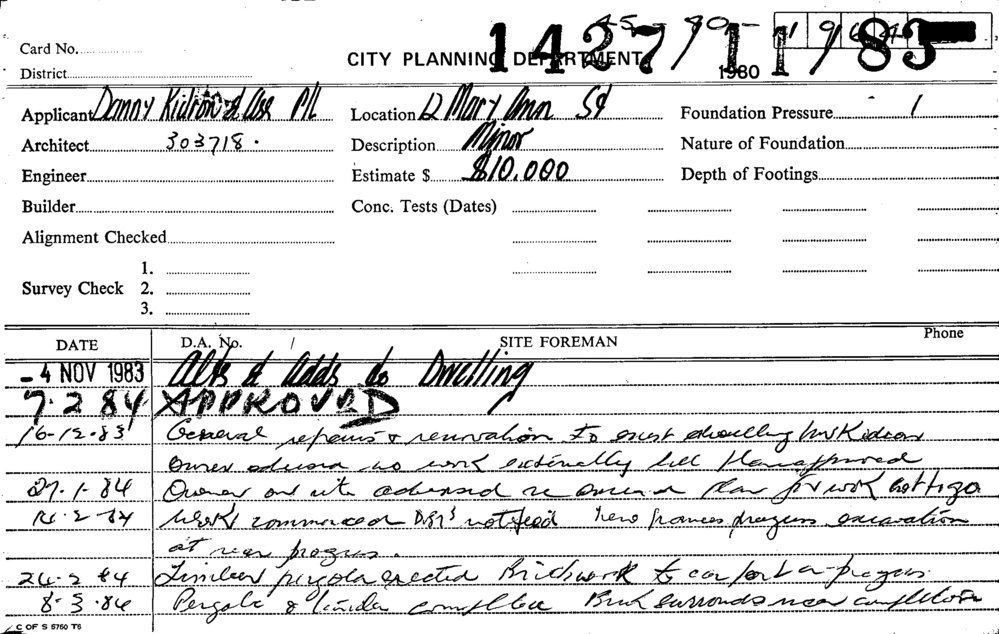 45-80- 1964
1427/11/83
Card No.
CITY PLANNING DEPARTMENT
District
1980
Applicant Danny Kidron & Ass P/L Location 12 Mary Ann St Foundation Pressure /
Architect 303718. Description Minor Nature of Foundation
Engineer Estimate $ $10,000 Depth of Footings
Builder Conc. Tests (Dates)
Alignment Checked
1.
Survey Check 2.
3.
DATE D.A. No. / SITE FOREMAN Phone
- 4 NOV 1983 Alts & Adds to Dwelling
7.2 84 APPROVED
16-12-83 General repairs & renovation to exist dwelling Mr Kidron
Owner advised no work externally till Plan approved
27.1.84 Owner on site advised re plan for work
14.2.84 Work commenced notified New frames progress excavation
at rear progress.
24.2 84 Timber pergola erected Brickwork to carport in progress.
8.3.84 Pergola & complete Brick surrounds near completion
C OF S 6760 T6